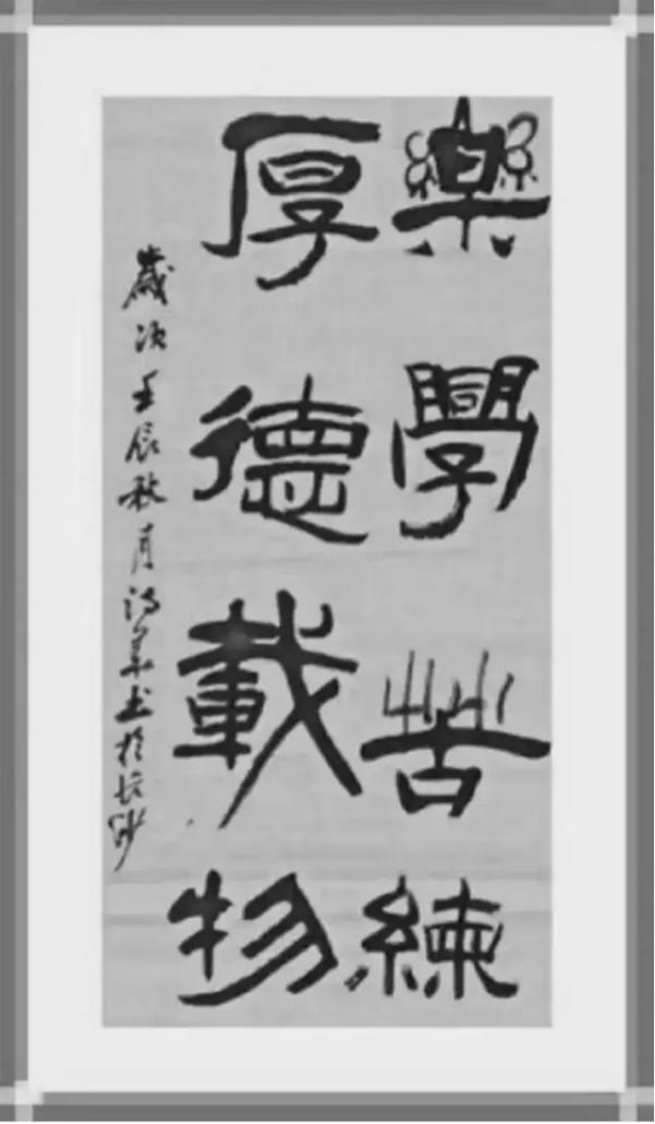 樂學苦練
厚德載物
歲次壬辰秋月鴻業書於長沙